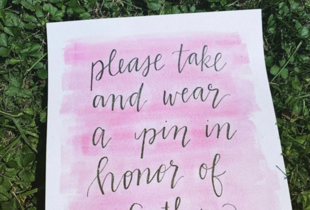 please take
and wear
a pin in
honor of